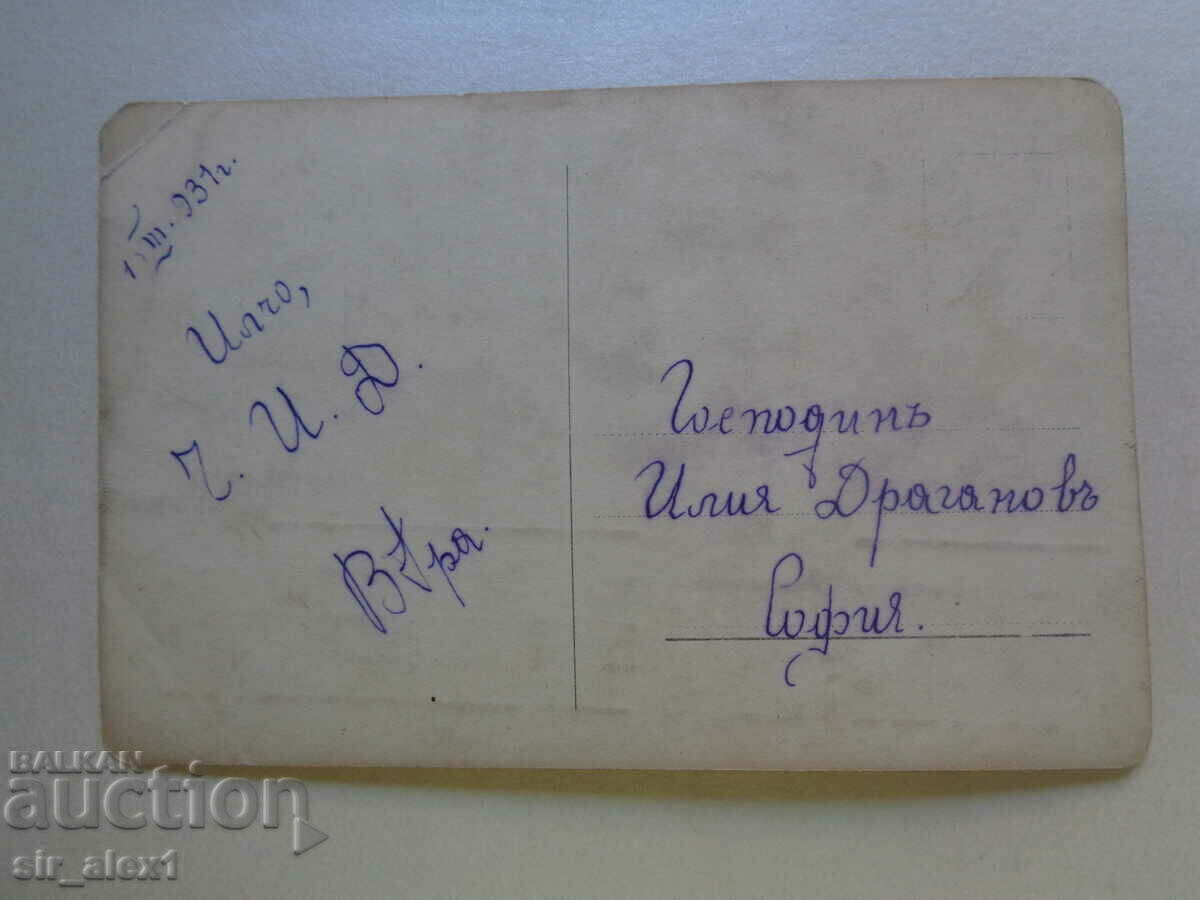 III. 931 г.
Илчо,
Ч. И. Д.
Вѣра.
Господинъ
Илия Драгановъ
София.
BALKAN
auction
sir_alex1